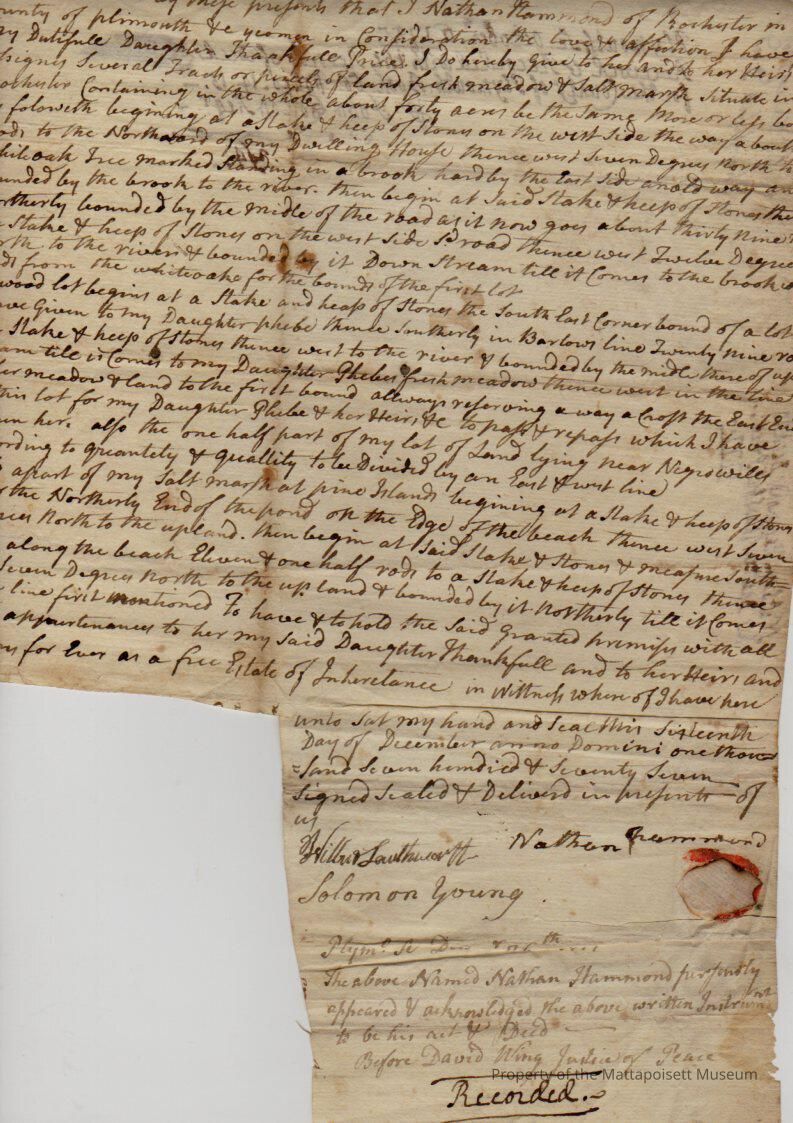 these presents that I Nathan Hammond of Rochester in
County of plimouth &c yeomen in Consideration the love & affection I have
my Dutifull Daughter Thankfull Price. I Do hereby give to her and to her Heirs
assigns Several Tracts or parcels of land fresh meadow & Salt marsh Situate in
Rochester Containing in the whole about forty acres be the Same More or less bo
foloweth begining at a Stake & heep of Stones on the west Side the way about
rods to the Northward of my Dwilling House thence west Seven Degrees North to
whiteoak Tree marked Standing in a brook hard by the East Side an old way an
bounded by the brook to the river. then begin at Said Stake & heep of Stones the
northerly bounded by the middle of the road as it now goes about thirty Nine
Stake & heep of Stones on the west Side Sd road thence west Twelve Degrees
North to the river & bounded by it Down Stream till it Comes to the brook
rods from the whiteoake for the bounds of the first lot
wood lot begins at a Stake and heap of Stones the South East Corner bound of a lot
have Given to my Daughter phebe thence Southerly in Barlows line Twenty Nine ro
Stake & heep of Stones thence west to the river & bounded by the midle there of up
Stream till it Comes to my Daughter Phebes fresh meadow thence west in the line
her meadow & land to the first bound allways reserving a way a Crost the East En
this lot for my Daughter Phebe & her Heirs &c to pass & repass which I have
given her. also the one half part of my lot of Land lying near Negro wills
according to quantety & quallity to be Divided by an East & west line
apart of my Salt marsh at pine Islands begining at a Stake & heep of Stones
the Northerly End of the pond on the Edge of the beach thence west Seven
degrees North to the upland. then begin at Said Stake & Stones & measure South=
along the beach Eleven & one half rods to a Stake & heep of Stones thence
Seven Degrees North to the upland & bounded by it Northerly till it Comes
line first mentioned To have & to hold the Said Granted premises with all
appurtenances to her my Said Daughter Thankfull and to her Heirs and
for Ever as a free Estate of Inheretance in Wittness where of I have here
unto Sat my hand and Seal this Sixteenth
Day of December anno Domini one thou=
=Sand Seven hundred & Seventy Seven
Signed Sealed & Deliverd in presents of
us
Wilbur Southworth Nathan Hammond
Solomon Young
Plymo. Ss
The above Named Nathan Hammond personally
appeared & acknowledged the above written Instrumt
to be his act & Deed
Before David Wing Justice of Peace
Recorded.
Property of the Mattapoisett Museum